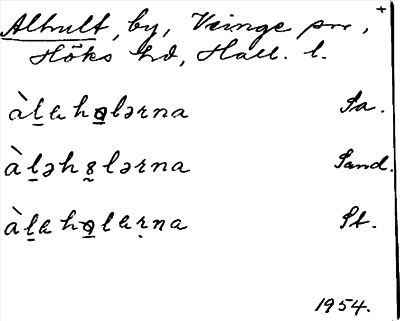 Alhult, by, Veinge sn,
Höks hd, Hall. l.
àl̠ɛho̠lərna Sa.
àl̠əhs̠lərna Sand.
àl̠ɛho̠lɛṛna St.
1954.